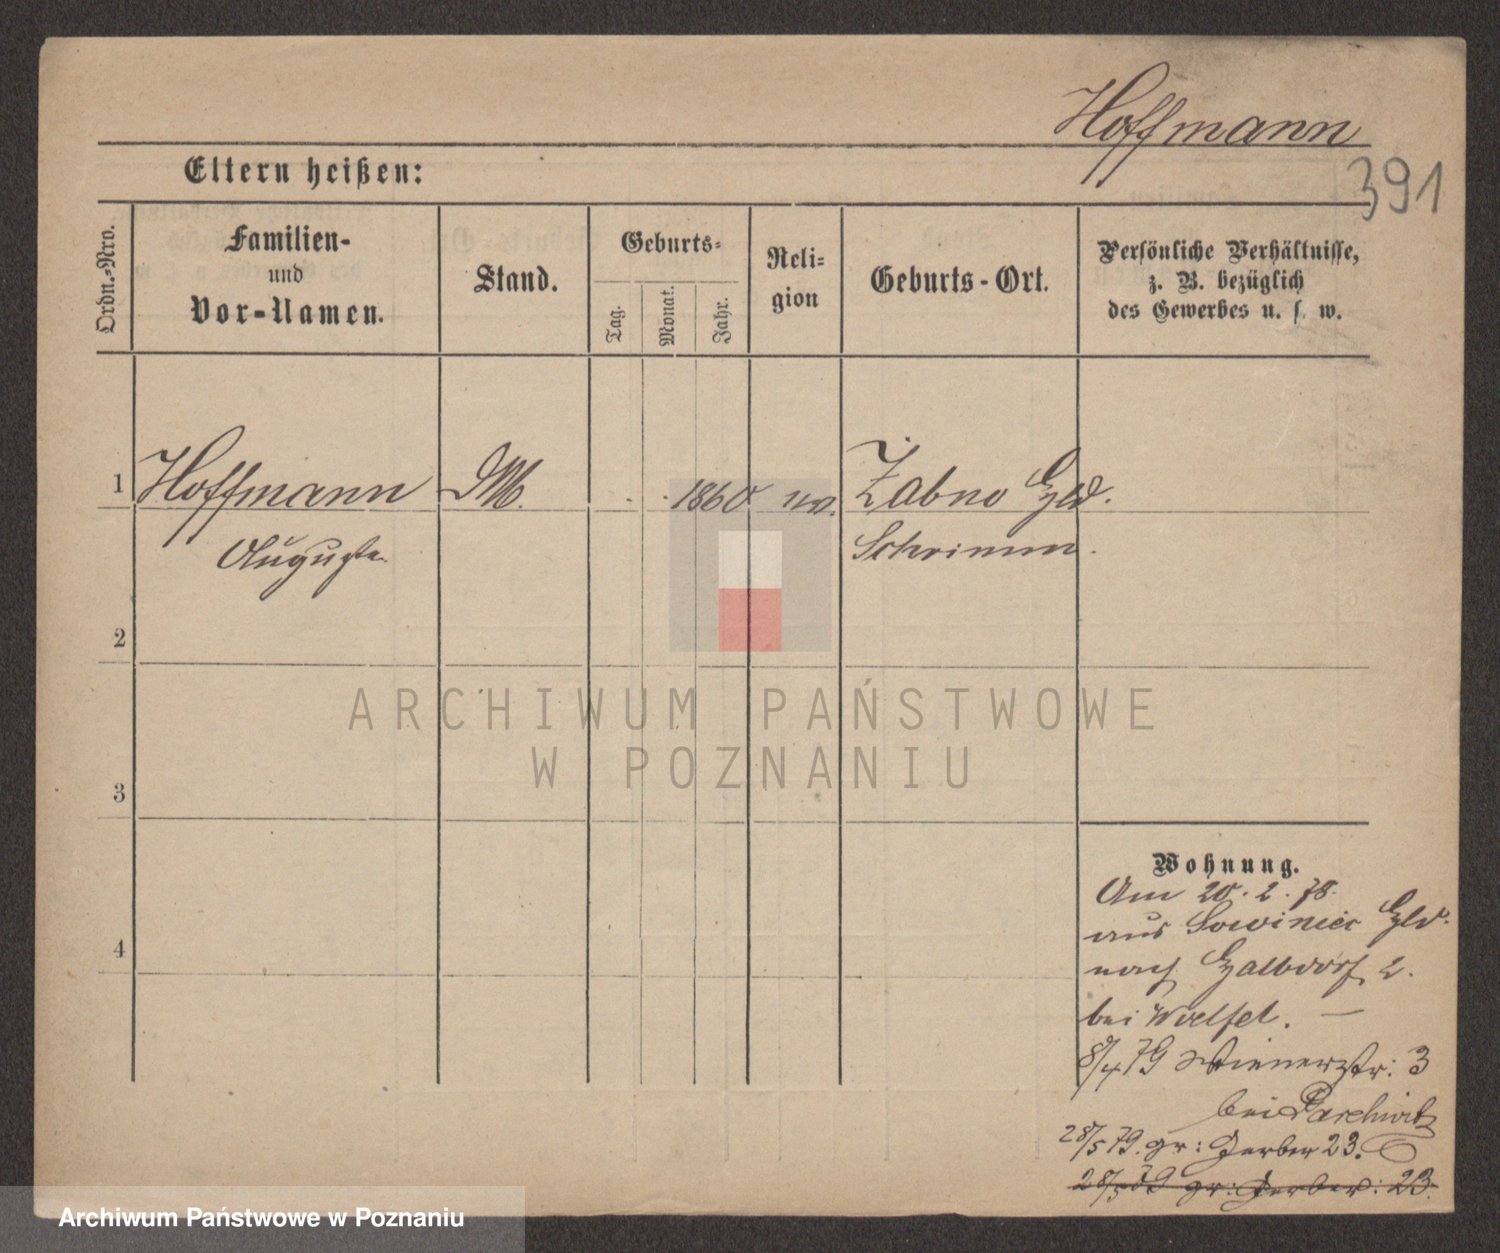 Hoffmann
391
Eltern heißen:
Ordn.-Nro.
Familien-
und
Vor-Namen.
Stand.
Geburts-
Tag.
Monat.
Jahr.
Reli-
gion
Geburts-Ort.
Persönliche Verhältnisse,
z. B. bezüglich
des Gewerbes u. s. w.
1 Hoffmann M. 1860. Zabno
Auguste Schrimm.
2
3
4
Wohnung.
Am 20. 2. 78.
aus Sowiniec
nach Halbdorf 2.
bei Woelfel. —
8/4 79 Wienerstr: 3
bei Parchwitz
28/5 79. gr: Gerber 23.
28/5 79 gr: Gerber: 23.
ARCHIWUM PAŃSTWOWE
W POZNANIU
Archiwum Państwowe w Poznaniu